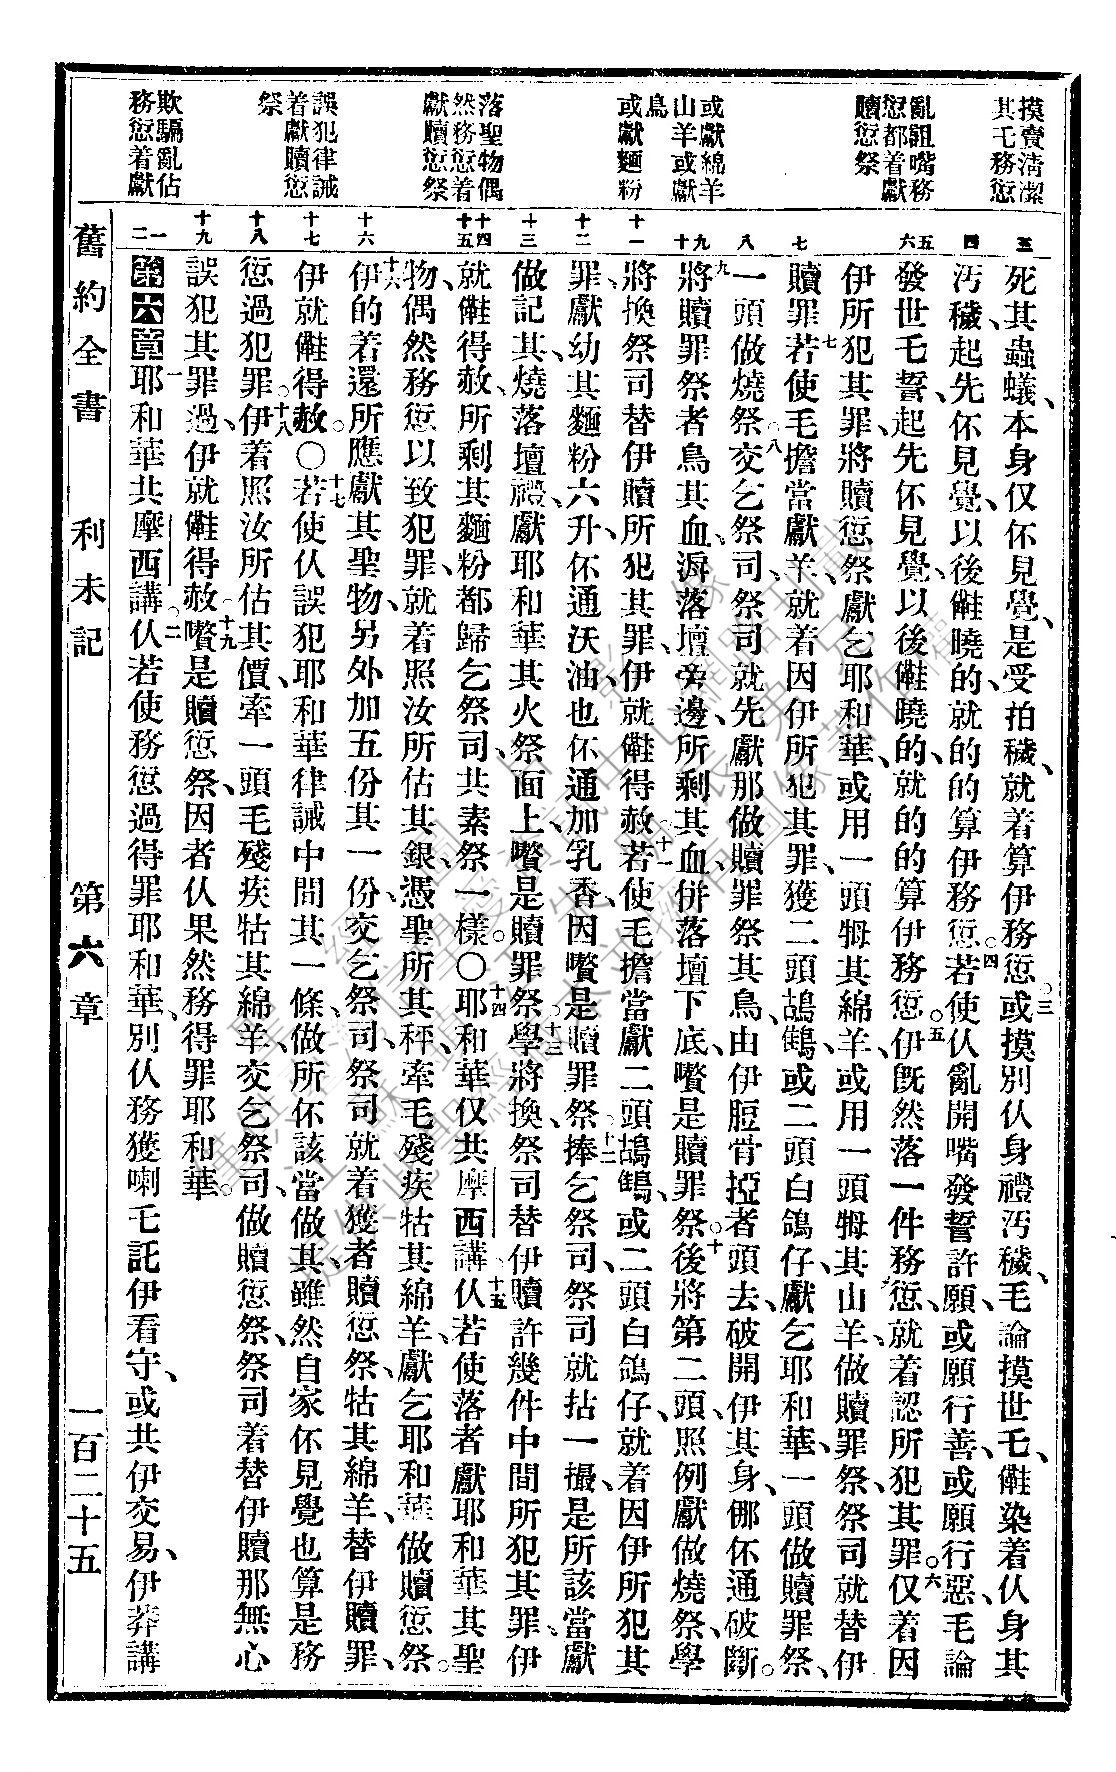 摸賣清潔
其乇務愆
亂詛嘴務
愆都着獻
贖愆祭
或獻綿羊
山羊或獻
鳥
或獻麵粉
落聖物偶
然務愆着
獻贖愆祭
誤犯律誡
着獻贖愆
祭
欺騙亂佔
務愆着獻
三 四 五 六 七 八 九 十 十一 十二 十三 十四 十五 十六 十七 十八 十九 一 二
死其蟲蟻、本身仅伓見覺、是受拍穢、就着算伊務愆。○三或摸別仈身禮汚穢、毛論摸世乇、㑚染着仈身其
汚穢、起先伓見覺、以後㑚曉的、就的的算伊務愆。○四若使仈亂開嘴發誓許願、或願行善、或願行惡、毛論
發世乇誓、起先伓見覺、以後㑚曉的、就的的算伊務愆。○五伊旣然落一件務愆、就着認所犯其罪。○六仅着因
伊所犯其罪、將贖愆祭、獻乞耶和華、或用一頭牳其綿羊、或用一頭牳其山羊、做贖罪祭、祭司就替伊
贖罪。七若使毛擔當獻羊、就着因伊所犯其罪、獲二頭鴣鶴、或二頭白鴿仔、獻乞耶和華、一頭做贖罪祭、
一頭做燒祭。○八交乞祭司、祭司就先獻那做贖罪祭其鳥、由伊脰骨掗者頭去、破開伊其身、僫伓通破斷。
九將贖罪祭者鳥其血、㴘落壇旁邊、所剩其血、併落壇下底、嚽是贖罪祭。○十後將第二頭、照例獻做燒祭、學
將換祭司替伊贖所犯其罪、伊就㑚得赦。○十一若使毛擔當獻二頭鴣鶴、或二頭白鴿仔、就着因伊所犯其
罪、獻幼其麵粉六升、伓通沃油、也伓通加乳香、因嚽是贖罪祭。○十二捧乞祭司、祭司就拈一撮、是所該當獻
做記其、燒落壇禮、獻耶和華其火祭面上、嚽是贖罪祭。○十三學將換祭司替伊贖許幾件中間所犯其罪、伊
就㑚得赦、所剩其麵粉、都歸乞祭司、共素祭一樣。○十四耶和華仅共摩西講、○十五仈若使落者獻耶和華其聖
物、偶然務愆、以致犯罪、就着照汝所估其銀、憑聖所其秤、牽毛殘疾牯其綿羊、獻乞耶和華做贖愆祭。
十六伊的着還所應獻其聖物、另外加五份其一份、交乞祭司、祭司就着獲者贖愆祭牯其綿羊、替伊贖罪、
伊就㑚得赦。○十七若使仈誤犯耶和華律誡中間其一條、做所伓該當做其、雖然自家伓見覺、也算是務
愆過犯罪。○十八伊着照汝所估其價、牽一頭毛殘疾牯其綿羊、交乞祭司、做贖愆祭、祭司着替伊贖那無心
誤犯其罪過、伊就㑚得赦。○十九嚽是贖愆祭、因者仈果然務得罪耶和華。
第六章 一耶和華共摩西講、○二仈若使務愆過、得罪耶和華、別仈務獲喇乇託伊看守、或共伊交易、伊莽講
舊約全書 利未記 第六章 一百二十五